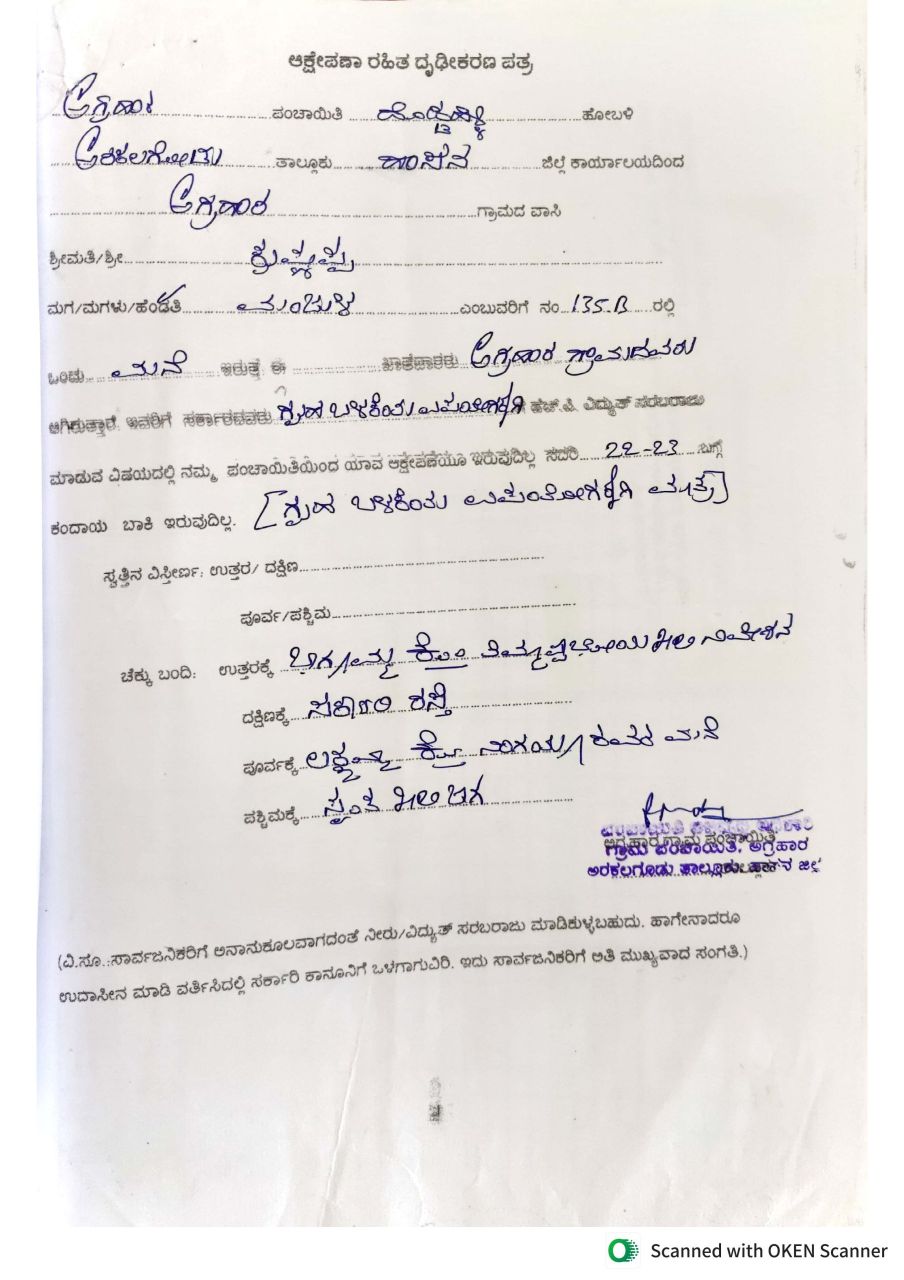 ಆಕ್ಷೇಪಣಾ ರಹಿತ ದೃಢೀಕರಣ ಪತ್ರ
ಅಗ್ರಹಾರ ಪಂಚಾಯಿತಿ ದೊಡ್ಡಹಳ್ಳಿ ಹೋಬಳಿ
ಅರಕಲಗೋಡು ತಾಲ್ಲೂಕು ಹಾಸನ ಜಿಲ್ಲೆ ಕಾರ್ಯಾಲಯದಿಂದ
ಅಗ್ರಹಾರ ಗ್ರಾಮದ ವಾಸಿ
ಶ್ರೀಮತಿ/ಶ್ರೀ
ಮಗ/ಮಗಳು/ಹೆಂಡತಿ ಎಂಬುವರಿಗೆ ನಂ 135-B ರಲ್ಲಿ
ಒಂದು ಮನೆ ಇರುತ್ತೆ ಈ ಖಾತೆದಾರರು ಅಗ್ರಹಾರ ಗ್ರಾಮದವರು
ಆಗಿರುತ್ತಾರೆ ಇವರಿಗೆ ಸರ್ಕಾರದವರು ಗೃಹ ಬಳಕೆಯ ಉಪಯೋಗಕ್ಕಾಗಿ ಹೆಚ್.ಪಿ. ವಿದ್ಯುತ್ ಸರಬರಾಜು
ಮಾಡುವ ವಿಷಯದಲ್ಲಿ ನಮ್ಮ ಪಂಚಾಯಿತಿಯಿಂದ ಯಾವ ಆಕ್ಷೇಪಣೆಯೂ ಇರುವುದಿಲ್ಲ ಸದರಿ 22-23 ಬಗ್ಗೆ
ಕಂದಾಯ ಬಾಕಿ ಇರುವುದಿಲ್ಲ. [ಗೃಹ ಬಳಕೆಯ ಉಪಯೋಗಕ್ಕಾಗಿ ಮಾತ್ರ]
ಸ್ವತ್ತಿನ ವಿಸ್ತೀರ್ಣ: ಉತ್ತರ/ ದಕ್ಷಿಣ
ಪೂರ್ವ/ಪಶ್ಚಿಮ
ಚೆಕ್ಕು ಬಂದಿ: ಉತ್ತರಕ್ಕೆ ಭಾಗ್ಯಮ್ಮ ಕೋಂ ನಿವೇಶನ
ದಕ್ಷಿಣಕ್ಕೆ ಸರ್ಕಾರಿ ರಸ್ತೆ
ಪೂರ್ವಕ್ಕೆ ಲಕ್ಷ್ಮಮ್ಮ ಕೋಂ ರವರ ಮನೆ
ಪಶ್ಚಿಮಕ್ಕೆ ಸ್ವಂತ ಖಾಲಿ ಜಾಗ
ಅಗ್ರಹಾರ ಗ್ರಾಮ ಪಂಚಾಯಿತಿ
ಗ್ರಾಮ ಪಂಚಾಯಿತಿ, ಅಗ್ರಹಾರ
ಅರಕಲಗೂಡು ತಾಲ್ಲೂಕು, ಹಾಸನ ಜಿಲ್ಲೆ
(ವಿ.ಸೂ.:ಸಾರ್ವಜನಿಕರಿಗೆ ಅನಾನುಕೂಲವಾಗದಂತೆ ನೀರು/ವಿದ್ಯುತ್ ಸರಬರಾಜು ಮಾಡಿಕುಳ್ಳಬಹುದು. ಹಾಗೇನಾದರೂ
ಉದಾಸೀನ ಮಾಡಿ ವರ್ತಿಸಿದಲ್ಲಿ ಸರ್ಕಾರಿ ಕಾನೂನಿಗೆ ಒಳಗಾಗುವಿರಿ. ಇದು ಸಾರ್ವಜನಿಕರಿಗೆ ಅತಿ ಮುಖ್ಯವಾದ ಸಂಗತಿ.)
Scanned with OKEN Scanner